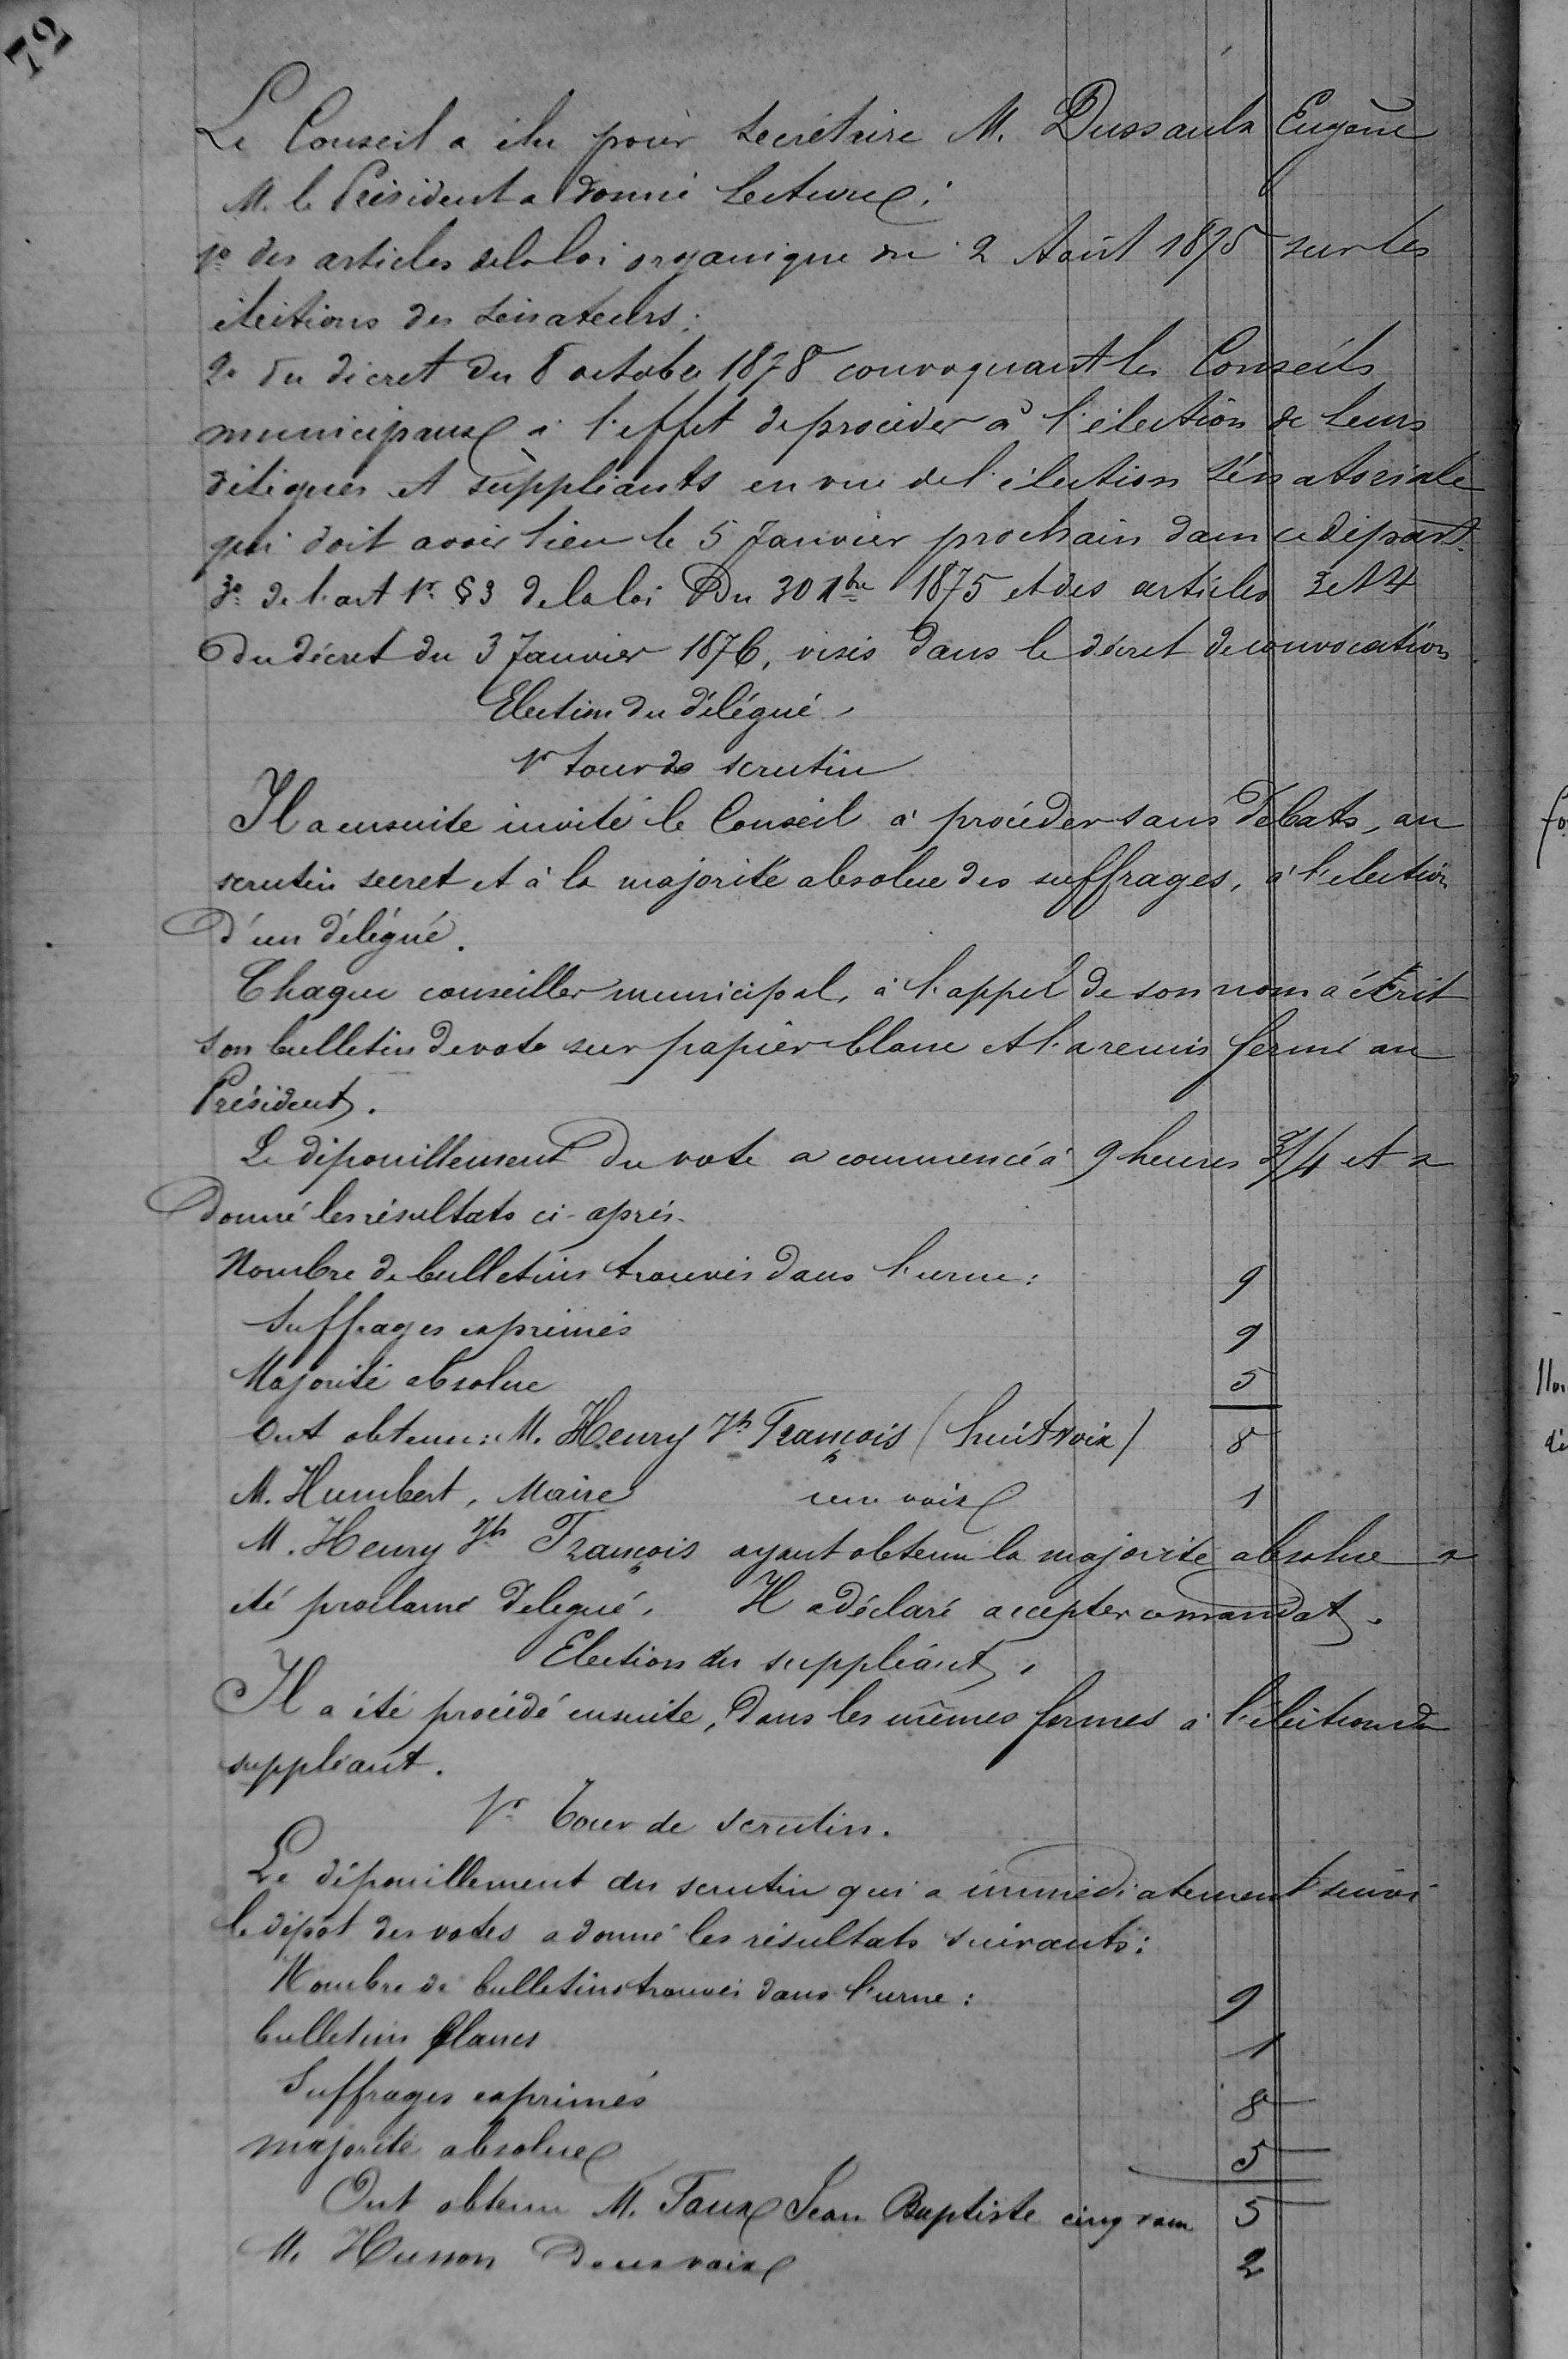 72
Le Conseil a élu pour secrétaire M. Dussaulx Eugène
M. le Président a donné lecture :
1º des articles de la loi organique du 2 Août 1875 sur les
élections des sénateurs ;
2º du décret du 8 octobre 1878 convoquant les Conseils
municipaux à l'effet de procéder à l'élection de leurs
délégués et suppléants en vue de l'élection sénatoriale
qui doit avoir lieu le 5 Janvier prochain dans ce départ.
3º de l'art 1r § 3 de la loi du 30 Xbre 1875 et des articles 3 et 4
du décret du 3 Janvier 1876, visés dans le décret de convocation
Election du délégué
1r tour de scrutin
Il a ensuite invité le Conseil à procéder sans débats, au
scrutin secret et à la majorité absolue des suffrages, à l'election
d'un délégué.
Chaque conseiller municipal, à l'appel de son nom a écrit
son bulletin de vote sur papier blanc et l'a remis fermé au
Président.
Le dépouillement du vote a commencé à 9 heures 3/4 et a
donné les résultats ci-après.
Nombre de bulletins trouvés dans l'urne : 9
Suffrages exprimés 9
Majorité absolue 5
Ont obtenu : M. Henry Jh François (huit voix) 8
M. Humbert, Maire une voix 1
M. Henry Jh François ayant obtenu la majorité absolue a
été proclamé délegué. Il a déclaré accepter ce mandat.
Election du suppléant.
Il a été procédé ensuite, dans les mêmes formes à l'élection du
suppléant.
1r Tour de scrutin.
Le dépouillement du scrutin qui a immédiatement suivi
le dépot des votes a donné les résultats suivants :
Nombre de bulletins trouvés dans l'urne : 9
bulletins blancs 1
Suffrages exprimés 8
majorité absolue 5
Ont obtenu M. Faux Jean Baptiste cinq voix 5
M. Husson deux voix 2